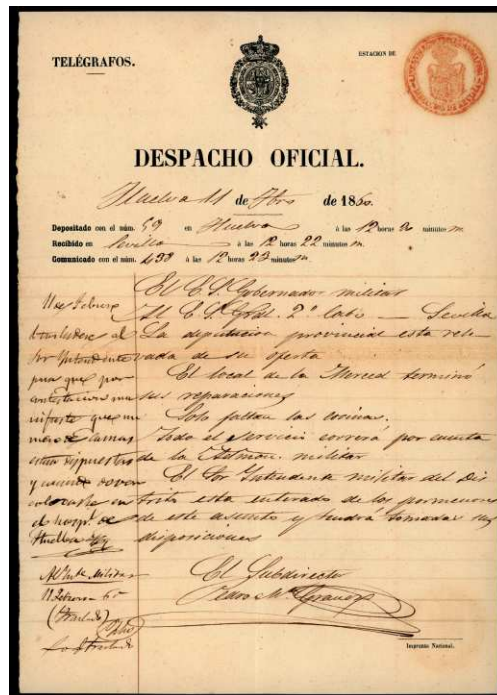 TELÉGRAFOS.
ESTACION DE
DESPACHO OFICIAL.
Huelva 11 de Fbro de 1860.
Depositado con el núm. 59 en Huelva á las 12 horas minutos m.
Recibido en Sevilla á las 12 horas 22 minutos m.
Comunicado con el núm. 438 á las 12 horas 23 minutos m
El E. S. Gobernador militar
Al E. S. Gral. 2º Cabo — Sevilla
La diputacion provincial esta rele
vada de su oferta
El local de la Merced terminó
sus reparaciones
Solo faltan las cocinas.
Todo el servicio correrá por cuenta
de la Admon. militar
El Sor Intendente militar del Dis
trito esta enterado de los pormenores
de este asunto y tendrá tomadas sus
disposiciones
El Subdirector
Pedro Mª
11 de Febrero
trasladese al
Sor Intendente
para que por
contestacion ma
nifieste que nu
mero de camas
estan dispuestas
y cuando
colocarse en
el hospl. de
Huelva
Al Inte. Militar
11 Febrero 60
(Traslado)
Imprenta Nacional.